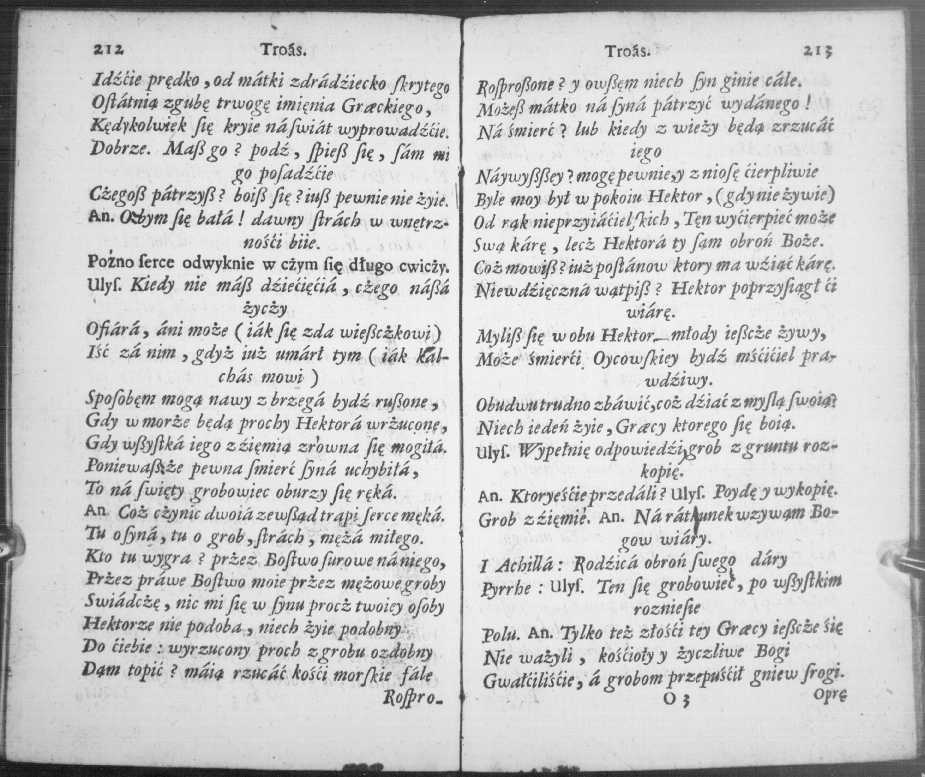 212 Troás.
Idźćie prędko, od mátki zdrádźiecko ſkrytego
Oſtátnią zgubę trwogę imięnia Græckiego,
Kędykolwięk ſię kryie ná ſwiát wyprowadźćie.
Dobrze. Maß go? podź, ſpieß ſię, ſám mi
go poſadźćie
Cżegoß pátrzyß? boiß ſię? iuß pewnie nie żyie.
An. Ożbym ſię bałá! dawny ſtrách w wnętrz-
nośći biie.
Poźno ſerce odwyknie w cżym ſię długo cwicży.
Ulyſ. Kiedy nie máß dźiećięćiá, cżego náßá
życży
Ofiárá, áni może (iák ſię zda wieſzcżkowi)
Iść zá nim, gdyż iuż umárł tym (iák Kal-
chás mowi)
Spoſobęm mogą nawy z brzegá bydź rußone,
Gdy w morże będą prochy Hektorá wrżuconę,
Gdy wßyſtká iego źięmią zrowna ſię mogiłá.
Ponieważże pewna śmierć ſyná uchybiłá,
To ná ſwięty grobowiec oburzy ſię ręká.
An. Coż cżynic dwoiá zewßąd trapi ſerce męká.
Tu o ſyná, tu o grob, ſtrách, mężá miłego.
Kto tu wygra? przez Boſtwo ſurowe ná niego,
Przez práwe Boſtwo moie przez mężowe groby
Swiádcżę, nic mi ſię w ſynu procż twoiey oſoby
Hektorze nie podoba, niech żyie podobny
Do ćiebie: wyrzucony proch z grobu ozdobny
Dąm topić? máią rzucáć kośći morſkie fále
Roſpro-
Troás. 213
Roſproßone? y owßęm niech ſyn ginie cále.
Możeß mátko ná ſyná pátrzyć wydánego!
Ná śmierć? lub kiedy z wieży będą zrzucáć
iego
Náywyßßey? mogę pewnie, y znioſę ćierpliwie
Byle moy był w pokoiu Hektor, (gdy nie żywie)
Od rąk nieprzyiáćielſkich, Tęn wyćierpieć może
Swą kárę, lecż Hektorá ty ſąm obroń Boże.
Coż mowiß? iuż poſtánow ktory ma wźiąć kárę.
Niewdźięczna wątpiß? Hektor poprzyſiągł ći
wiárę.
Myliß ſię w obu Hektor młody ieſzcże żywy,
Może śmierći Oycowſkiey bydź mśćićiel pra-
wdźiwy.
Obudwu trudno zbáwić, coż dźiáć z myſlą ſwoią?
Niech iedeń żyie, Græcy ktorego ſię boią.
Ulyſ. Wypełnię odpowiedźi, grob z gruntu roz-
kopię.
An. Ktoryeśćie przedáli? Ulyſ. Poydę y wykopię.
Grob z źięmie. An. Ná rátunek wzywąm Bo-
gow wiáry.
I Achillá: Rodźicá obroń ſwego dáry
Pyrrhe: Ulyſ. Ten ſię grobowiec, po wßyſtkim
roznieſie
Polu. An. Tylko też złośći tey Græcy ieſzcże śię
Nie ważyli, kośćioły y życzliwe Bogi
Gwałćiliśćie, á grobom przepuśćił gniew ſrogi.
O 3 Oprę